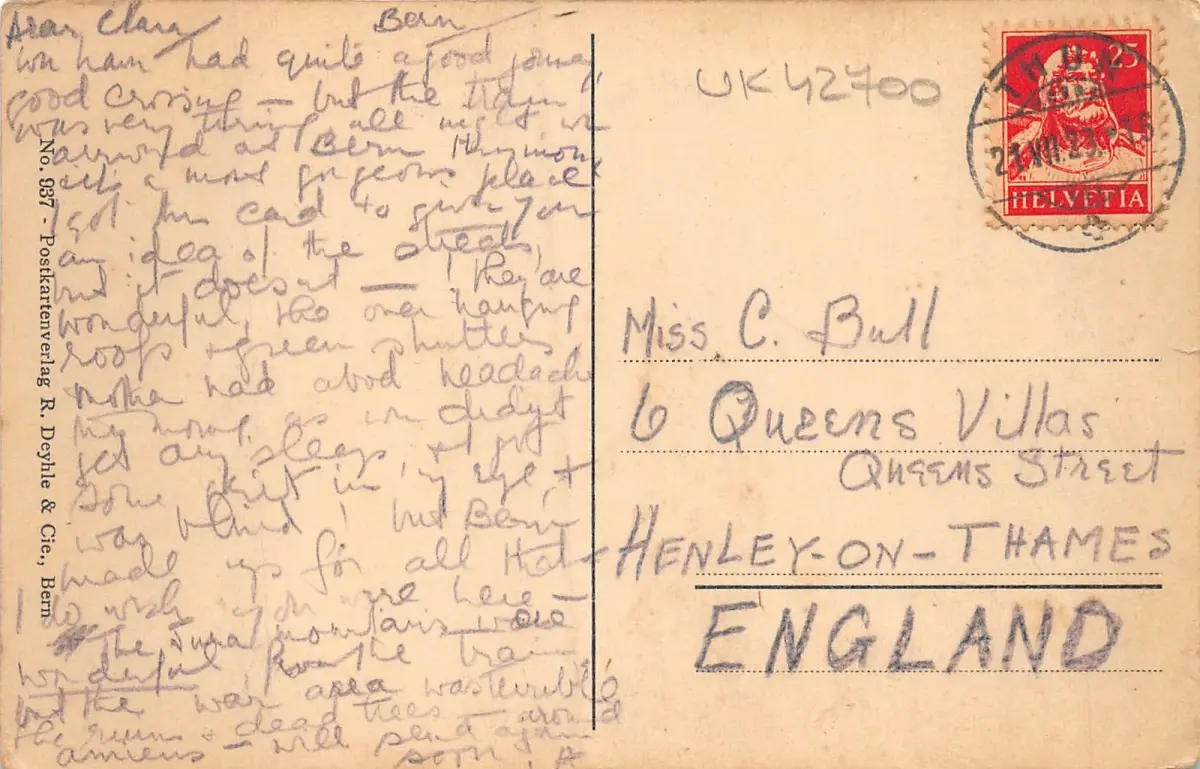 Dear Clara Bern
We have had quite a good journey,
good crossing — but the train
was very tiring all night we
arrived at Bern this morning
it's a most gorgeous place
I got this card to give you
an idea of the streets,
but it doesn't — they are
wonderful, the over hanging
roofs & green shutters.
Mother had a bad headache
this morng, as we didn't
get any sleep, & I got
some grit in my eye, &
was blind! but Bern
made up for all that —
I do wish you were here —
The Jura mountains were
wonderful from the train
but the war area was terrible,
the ruins & dead trees — around
amiens — will send again
soon. A
No. 937 - Postkartenverlag R. Deyhle & Cie., Bern
UK42700
THUN
25
HELVETIA
Miss C. Bull
6 Queens Villas
Queens Street
HENLEY-ON-THAMES
ENGLAND